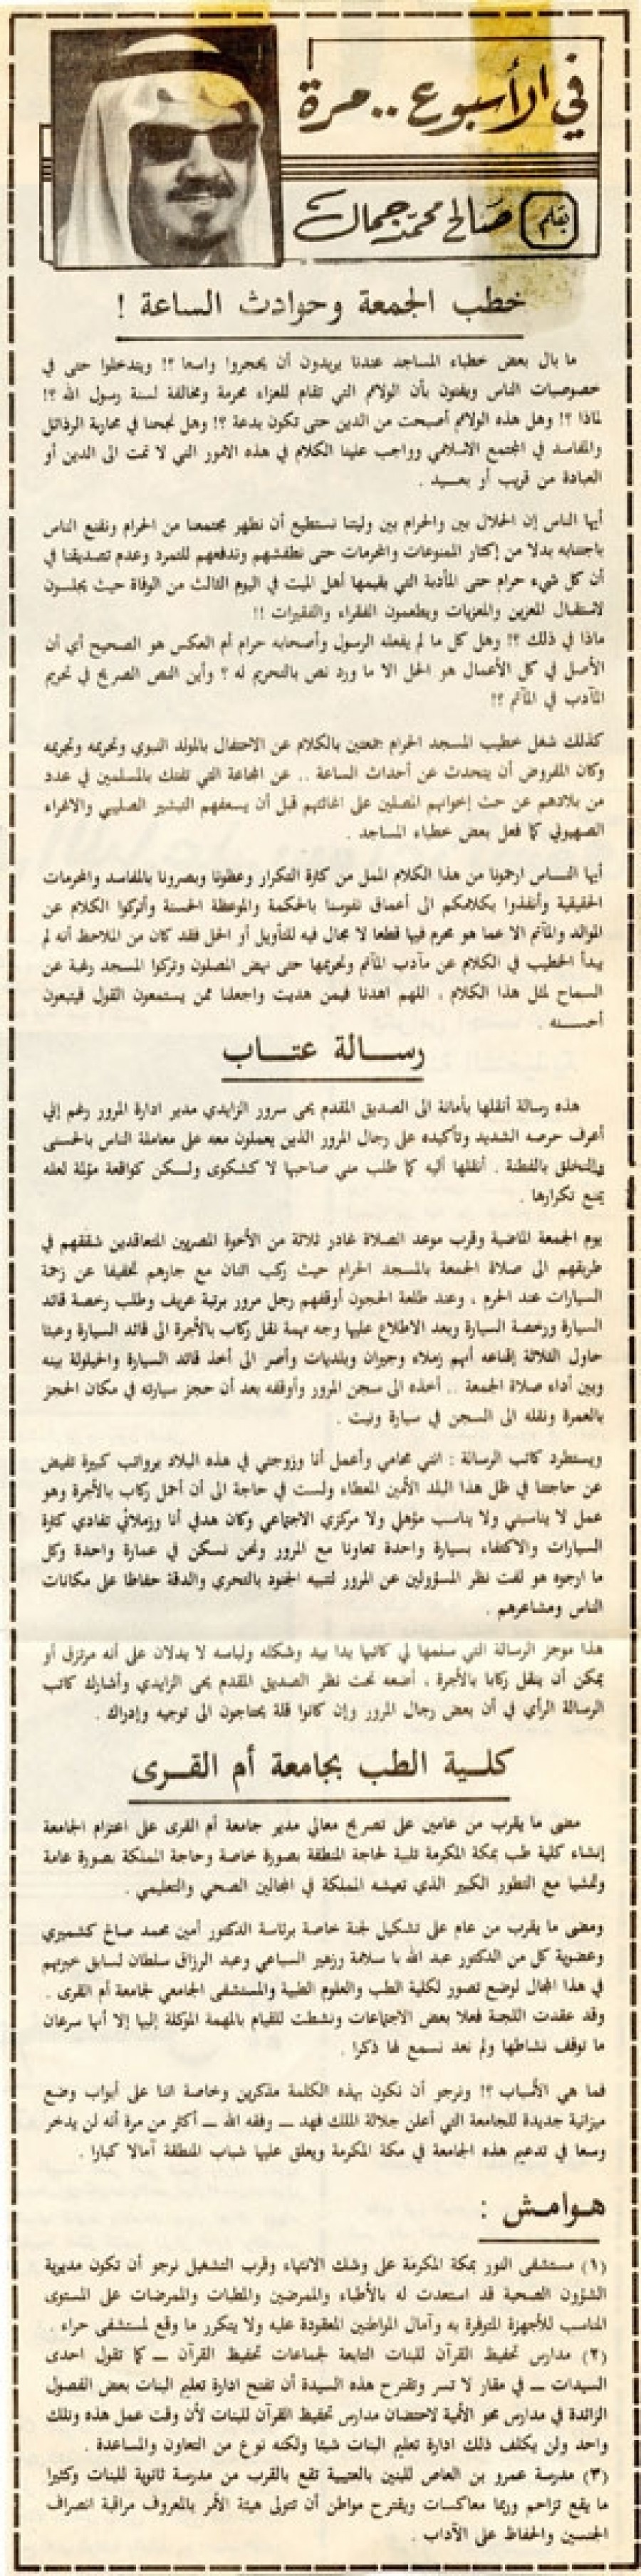 في الأسبوع .. مرة
بقلم صالح محمد جمال
خطب الجمعة وحوادث الساعة !
ما بال بعض خطباء المساجد عندنا يريدون أن يحجروا واسعا ؟! ويتدخلوا حتى في
خصوصيات الناس ويفتون بأن الولائم التي تقام للعزاء محرمة ومخالفة لسنة رسول الله ؟!
لماذا ؟! وهل هذه الولائم أصبحت من الدين حتى تكون بدعة ؟! وهل نجحنا في محاربة الرذائل
والمفاسد في المجتمع الاسلامي وواجب علينا الكلام في هذه الامور التي لا تمت الى الدين أو
العبادة من قريب أو بعـيد .
أيها الناس إن الحلال بين والحرام بين وليتنا نستطيع أن نطهر مجتمعنا من الحرام ونقنع الناس
باجتنابه بدلا من إكثار الممنوعات والمحرمات حتى نطفشهم وندفعهم للتمرد وعدم تصديقنا في
أن كل شيء حرام حتى المأدبة التي يقيمها أهل الميت في اليوم الثالث من الوفاة حيث يجلسون
لاستقبال المعزين والمعزيات ويطعمون الفقراء والفقيرات !!
ماذا في ذلك ؟! وهل كل ما لم يفعله الرسول وأصحابه حرام أم العكس هو الصحيح أي أن
الأصل في كل الأعمال هو الحل الا ما ورد نص بالتحريم له ؟ وأين النص الصريح في تحريم
المآدب في المآتم ؟!
كذلك شغل خطيب المسجد الحرام جمعتين بالكلام عن الاحتفال بالمولد النبوي وتحريمه وتجريمه
وكان المفروض أن يتحدث عن أحداث الساعة .. عن المجاعة التي تفتك بالمسلمين في عدد
من بلادهم عن حث إخوانهم المصلين على اغاثتهم قبل أن يسعفهم التبشير الصليبي والاغراء
الصهيوني كما فعل بعض خطباء المساجد .
أيها النـاس ارحمونا من هذا الكلام الممل من كثرة التكرار وعظونا وبصرونا بالمفاسد والمحرمات
الحقيقية وأنفذوا بكلامكم الى أعماق نفوسنا بالحكمة والموعظة الحسنة وأتركوا الكلام عن
الموالد والمآتم الا عما هو محرم فيها قطعا لا مجال فيه للتأويل أو الحل فقد كان من الملاحظ أنه لم
يبدأ الخطيب في الكلام عن مآدب المآتم وتحريمها حتى نهض المصلون وتركوا المسجد رغبة عن
السماح لمثل هذا الكلام . اللهم اهدنا فيمن هديت واجعلنا ممن يستمعون القول فيتبعون
أحسـنه .
رسـالة عتـاب
هذه رسالة أنقلها بأمانة الى الصديق المقدم يحى سرور الزايدي مدير ادارة المرور رغم إني
أعرف حرصه الشديد وتأكيده على رجال المرور الذين يعملون معه على معاملة الناس بالحسنى
والتخلق بالفطنة . أنقلها أليه كما طلب مني صاحبها لا كشكوى ولـكن كواقعة مؤلمة لعله
يمنع تكرارها .
يوم الجمعة الماضية وقرب موعد الصلاة غادر ثلاثة من الأخوة المصريين المتعاقدين شققهم في
طريقهم الى صلاة الجمعة بالمسجد الحرام حيث ركب اثنان مع جارهم تخفيفا عن زحمة
السيارات عند الحرم . وعند طلعة الحجون أوقفهم رجل مرور برتبة عريف وطلب رخصة قائد
السيارة ورخصة السيارة وبعد الاطلاع عليها وجه تهمة نقل ركاب بالأجرة الى قائد السيارة وعبثا
حاول الثلاثة إقناعه أنهم زملاء وجيران وبلديات وأصر الى أخذ قائد السيارة والحيلولة بينه
وبين أداء صلاة الجمعة .. أخذه الى سجن المرور وأوقفه بعد أن حجز سيارته في مكان الحجز
بالعمرة ونقله الى السجن في سيارة ونيت .
ويستطرد كاتب الرسالة : انني محامي وأعمل أنا وزوجتي في هذه البلاد برواتب كبيرة تفيض
عن حاجتنا في ظل هذا البلد الأمين المعطاء ولست في حاجة الى أن أحمل ركاب بالأجرة وهو
عمل لا يناسبني ولا يناسب مؤهلي ولا مركزي الاجتماعي وكان هدفي أنا وزملائي تفادي كثرة
السيارات والاكتفاء بسيارة واحدة تعاونا مع المرور ونحن نسكن في عمارة واحدة وكل
ما ارجوه هو لفت نظر المسؤولين عن المرور لتنبيه الجنود بالتحري والدقة حفاظا على مكانات
الناس ومشاعرهم .
هذا موجز الرسالة التي سلمها لي كاتبها يدا بيد وشكله ولباسه لا يدلان على أنه مرتزق أو
يمكن أن ينقل ركابا بالأجرة . أضعه تحت نظر الصديق المقدم يحى الزايدي وأشارك كاتب
الرسالة الرأي في أن بعض رجال المرور وإن كانوا قلة يحتاجون الى توجيه وإدراك .
كلـية الطب بجامعة أم القـرى
مضى ما يقرب من عامين على تصريح معالي مدير جامعة أم القرى على اعتزام الجامعة
إنشاء كلية طب بمكة المكرمة تلبية لحاجة المنطقة بصورة خاصة وحاجة المملكة بصورة عامة
وتمشيا مع التطور الكبير الذي تعيشه المملكة في المجالين الصحي والتعليمي .
ومضى ما يقرب من عام على تشكيل لجنة خاصة برئاسة الدكتور أمين محمد صالح كشميري
وعضوية كل من الدكتور عبد الله با سلامة وزهير السباعي وعبد الرزاق سلطان لسابق خبرتهم
في هذا المجال لوضع تصور لكلية الطب والعلوم الطبية والمستشفى الجامعي لجامعة أم القرى .
وقد عقدت اللجنة فعلا بعض الاجتماعات ونشطت للقيام بالمهمة الموكلة إليها إلا أنها سرعان
ما توقف نشاطها ولم نعد نسمع لها ذكرا .
فما هي الأسباب ؟! ونرجو أن نكون بهذه الكلمة مذكرين وخاصة اننا على أبواب وضع
ميزانية جديدة للجامعة التي أعلن جلالة الملك فهد ــ وفقه الله ــ أكثر من مرة أنه لن يدخر
وسعا في تدعيم هذه الجامعة في مكة المكرمة ويعلق عليها شباب المنطقة آمالا كبارا .
هـوامـش :
(١) مستشفى النور بمكة المكرمة على وشك الانتهاء وقرب التشغيل نرجو أن تكون مديرية
الشؤون الصحية قد استعدت له بالأطباء والممرضين والطبيبات والممرضات على المستوى
المناسب للأجهزة المتوفرة به وآمال المواطنين المعقودة عليه ولا يتكرر ما وقع لمستشفى حراء .
(٢) مدارس تحفيظ القرآن للبنات التابعة لجماعات تحفيظ القرآن ــ كما تقول احدى
السيدات ــ في مقار لا تسر وتقترح هذه السيدة أن تفتح ادارة تعليم البنات بعض الفصول
الزائدة في مدارس محو الأمية لاحتضان مدارس تحفيظ القرآن للبنات لأن وقت عمل هذه وتلك
واحد ولن يكلف ذلك ادارة تعليم البنات شيئا ولكنه نوع من التعاون والمساعدة .
(٣) مدرسة عمرو بن العاص للبنين بالعتيبية تقع بالقرب من مدرسة ثانوية للبنات وكثيرا
ما يقع تزاحم وربما معاكسات ويقترح مواطن أن تتولى هيئة الأمر بالمعروف مراقبة انصراف
الجنسين والحفاظ على الآداب .